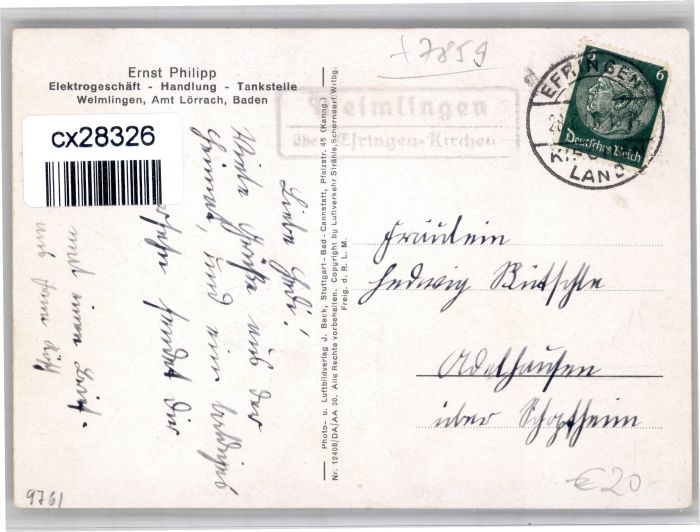 Ernst Philipp
Elektrogeschäft - Handlung - Tankstelle
Welmlingen, Amt Lörrach, Baden
cx28326
+7859
Welmlingen
über Efringen-Kirchen
EFRINGEN
KI
LAND
6
Deutsches Reich
Liebe Hedi!
Viele Grüße aus der
Heimat, und ein baldiges
sendet dir
mal einen Brief.
Photo- u. Luftbildverlag J. Beck, Stuttgart-Bad-Cannstatt, Pfalzstr. 45 (Kanng.)
Nr. 12408/DA/AA 30. Alle Rechte vorbehalten. Copyright by Luftverkehr Strähle, Schorndorf Wttbg.
Freig. d. R. L. M.
Fräulein
Hedwig Rütschle
Adelhausen
über Schopfheim
€20-
9761